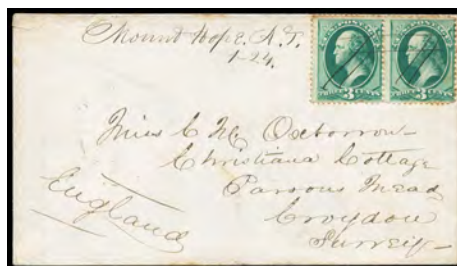 Mount Hope. N.Y.
1-24.
Miss C Oxborrow
Christiana Cottage
Parsons Mead
Croydon
Surrey
England
3 3